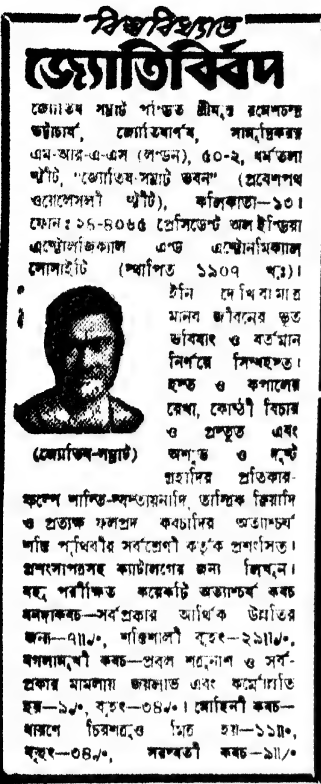 বিশ্ববিখ্যাত
জ্যোতির্বিদ
জ্যোতিষ সম্রাট পণ্ডিত শ্রীযুক্ত রমেশচন্দ্র
ভট্টাচার্য, জ্যোতিষার্ণব, সামুদ্রিকরত্ন
এম-আর-এ-এস (লণ্ডন), ৫০-২, ধর্মতলা
স্ট্রীট, "জ্যোতিষ-সম্রাট ভবন" (প্রবেশপথ
ওয়েলেসলী স্ট্রীট), কলিকাতা—১৩।
ফোন: ২৪-৪০৬৫ প্রেসিডেন্ট অল ইন্ডিয়া
এস্ট্রোলজিক্যাল এন্ড এস্ট্রোনমিক্যাল
সোসাইটি (স্থাপিত ১৯০৭ খৃঃ)।
ইনি দেখিবামাত্র
মানব জীবনের ভূত
ভবিষ্যৎ ও বর্তমান
নির্ণয়ে সিদ্ধহস্ত।
হস্ত ও কপালের
রেখা, কোষ্ঠী বিচার
ও প্রস্তুত এবং
অশুভ ও দুষ্ট
গ্রহাদির প্রতিকার-
(জ্যোতিষ-সম্রাট)
কল্পে শান্তি-স্বস্ত্যয়নাদি, তান্ত্রিক ক্রিয়াদি
ও প্রত্যক্ষ ফলপ্রদ কবচাদির অত্যাশ্চর্য
শক্তি পৃথিবীর সর্বশ্রেণী কর্তৃক প্রশংসিত।
প্রশংসাপত্রসহ ক্যাটালগের জন্য লিখুন।
বহু পরীক্ষিত কয়েকটি অত্যাশ্চর্য কবচ
ধনদাকবচ—সর্বপ্রকার আর্থিক উন্নতির
জন্য—৭৷৷৵৹, শক্তিশালী বৃহৎ—২৯৷৷৵৹,
বগলামুখী কবচ—প্রবল শত্রুনাশ ও সর্ব-
প্রকার মামলায় জয়লাভ এবং কর্মোন্নতি
হয়—৯৵৹, বৃহৎ—৩৪৵৹। মোহিনী কবচ—
ধারণে চিরশত্রুও মিত্র হয়—১১৷৷৹,
বৃহৎ—৩৪৵৹, সরস্বতী কবচ—৯৷৷৵৹